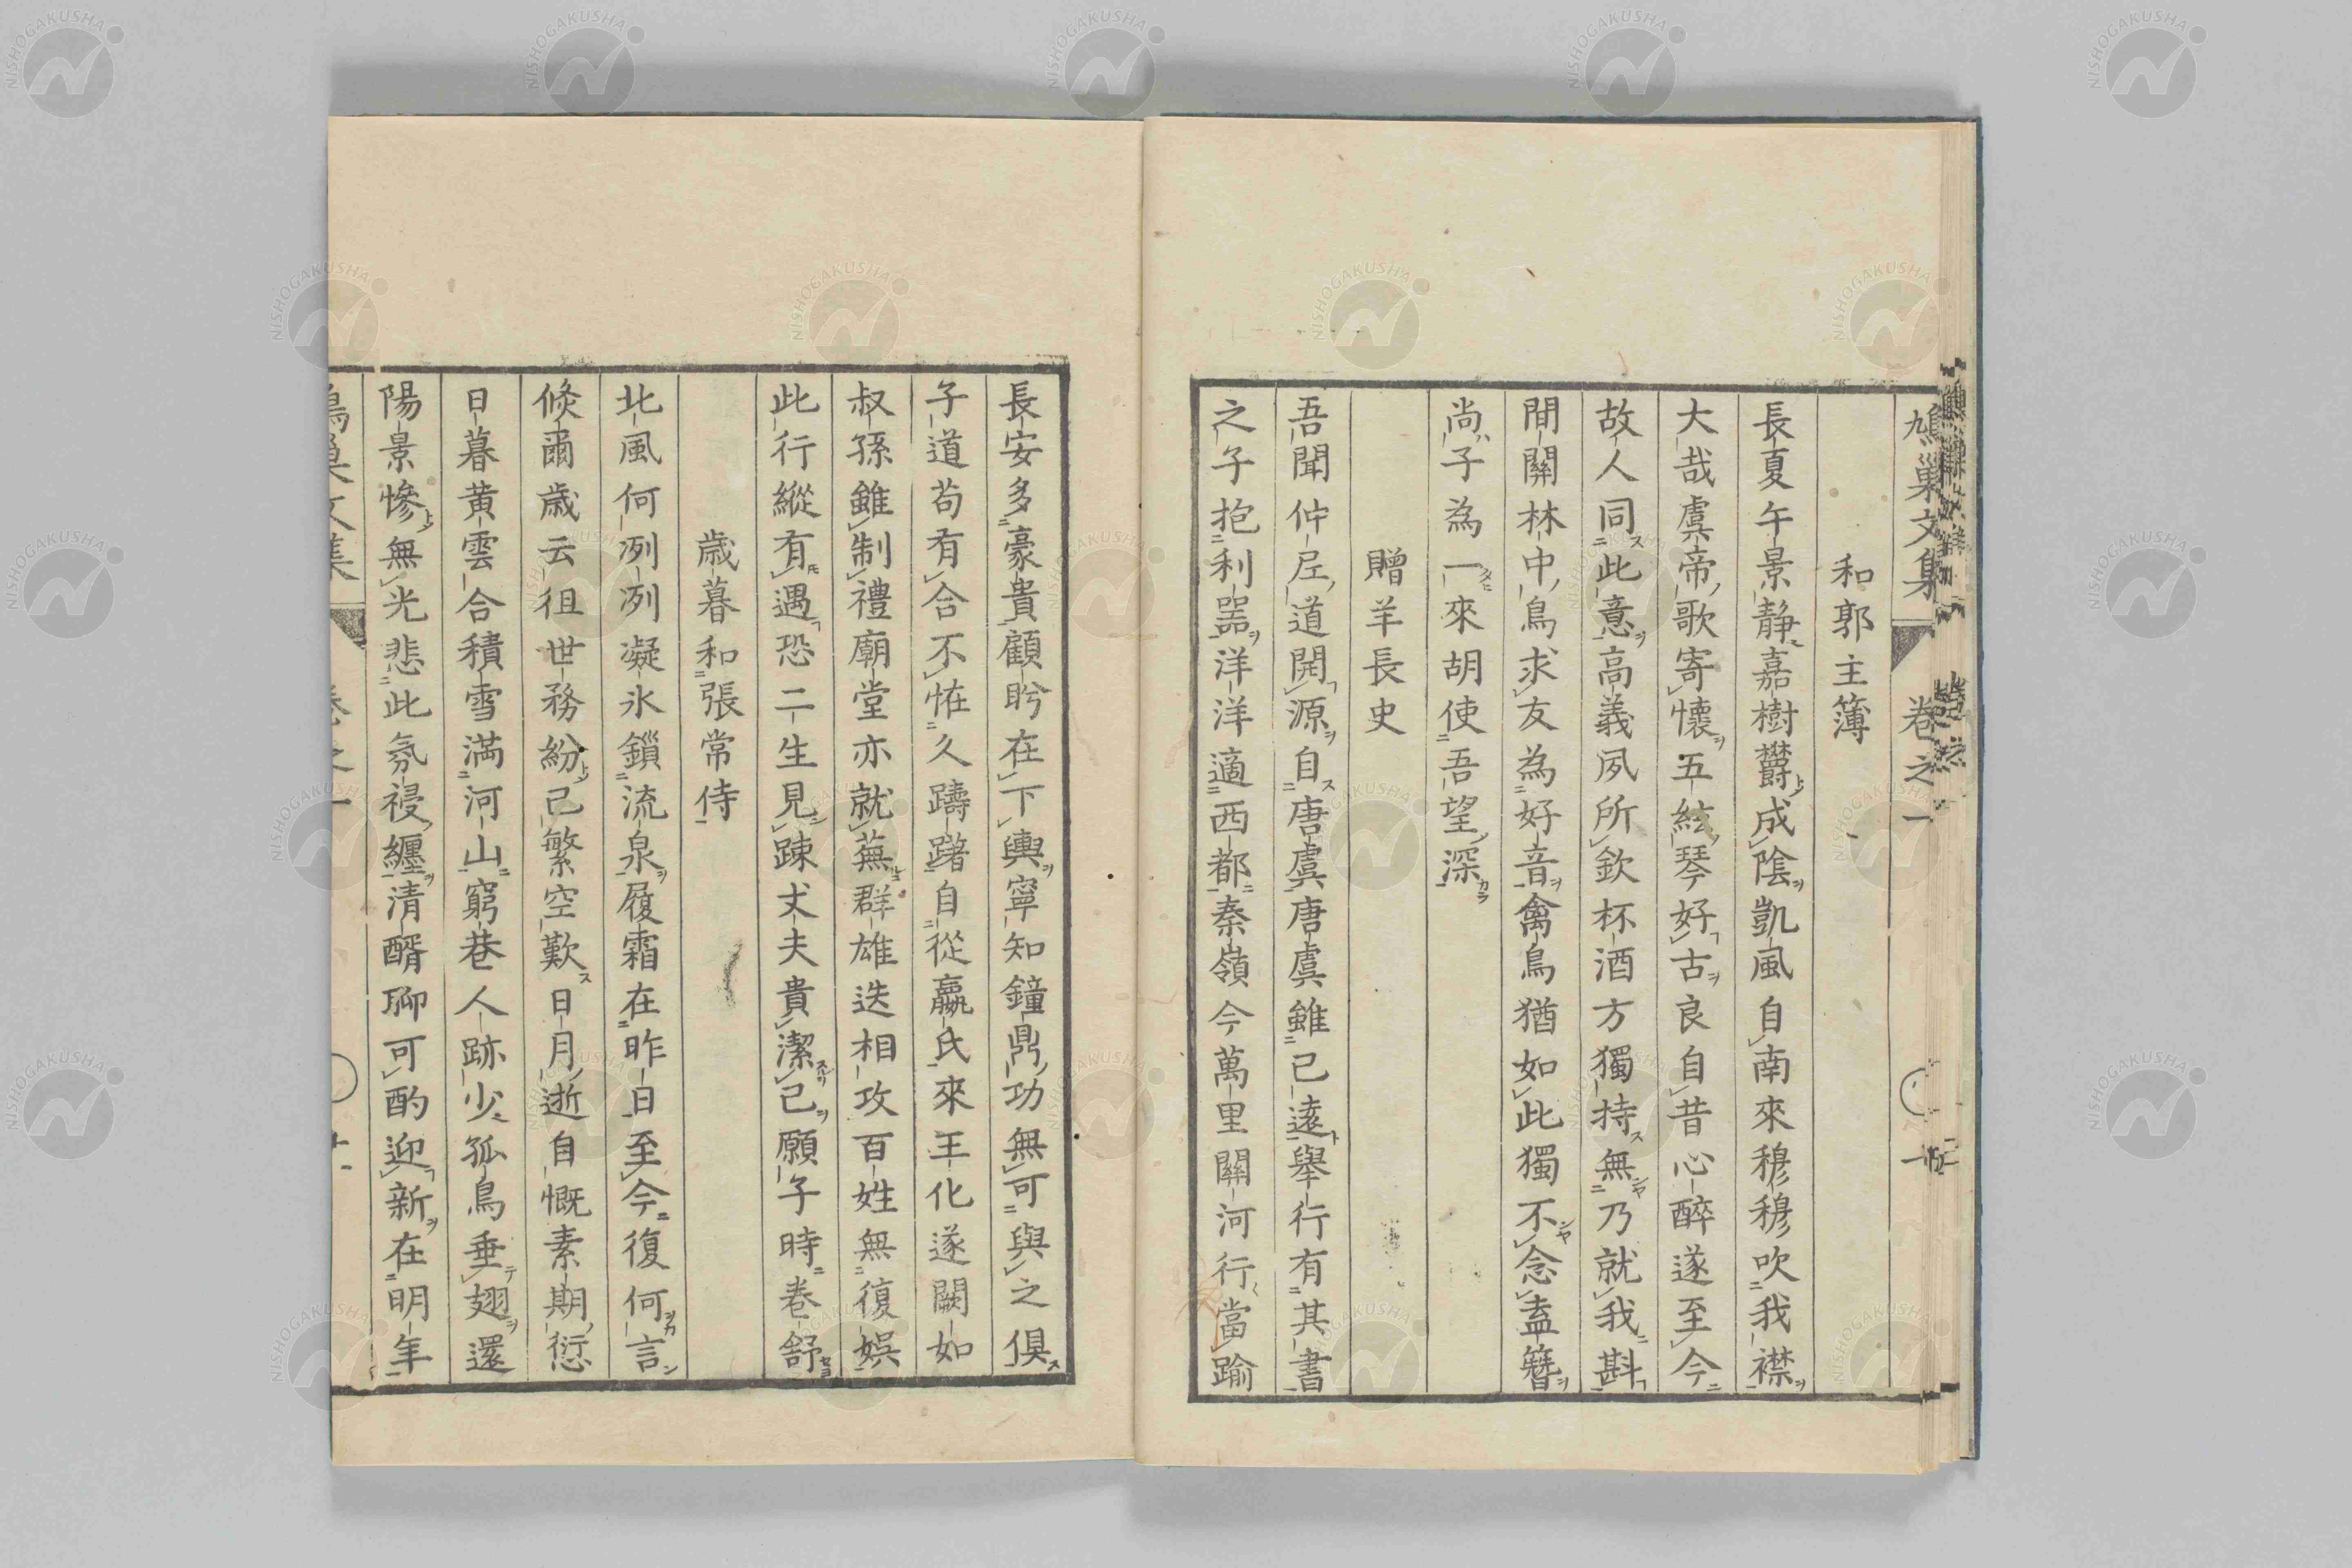 鳩巢文集 卷之一
和郭主簿
長夏午景靜嘉樹欝成陰凱風自南來穆穆吹我襟
大哉虞帝歌寄懷五絃琴好古良自昔心醉遂至今
故人同此意高義夙所欽杯酒方獨持無乃就我斟
間關林中鳥求友為好音禽鳥猶如此獨不念盍簪
尚子為一來胡使吾望深
贈羊長史
吾聞仲尼道開源自唐虞唐虞雖已遠舉行有其書
之子抱利器洋洋適西都秦嶺今萬里關河行當踰
長安多豪貴顧眄在下輿寧知鐘鼎功無可與之俱
子道苟有合不恠久躊躇自從嬴氏來王化遂闕如
叔孫雖制禮廟堂亦就蕪群雄迭相攻百姓無復娯
此行縱有遇恐二生見踈丈夫貴潔己願子時卷舒
歲暮和張常侍
北風何冽冽凝氷鎖流泉履霜在昨日至今復何言
倏爾歲云徂世務紛已繁空歎日月逝自慨素期愆
日暮黃雲合積雪滿河山窮巷人跡少孤鳥垂翅還
陽景慘無光悲此氛祲纏清醑聊可酌迎新在明年
NISHOGAKUSHA